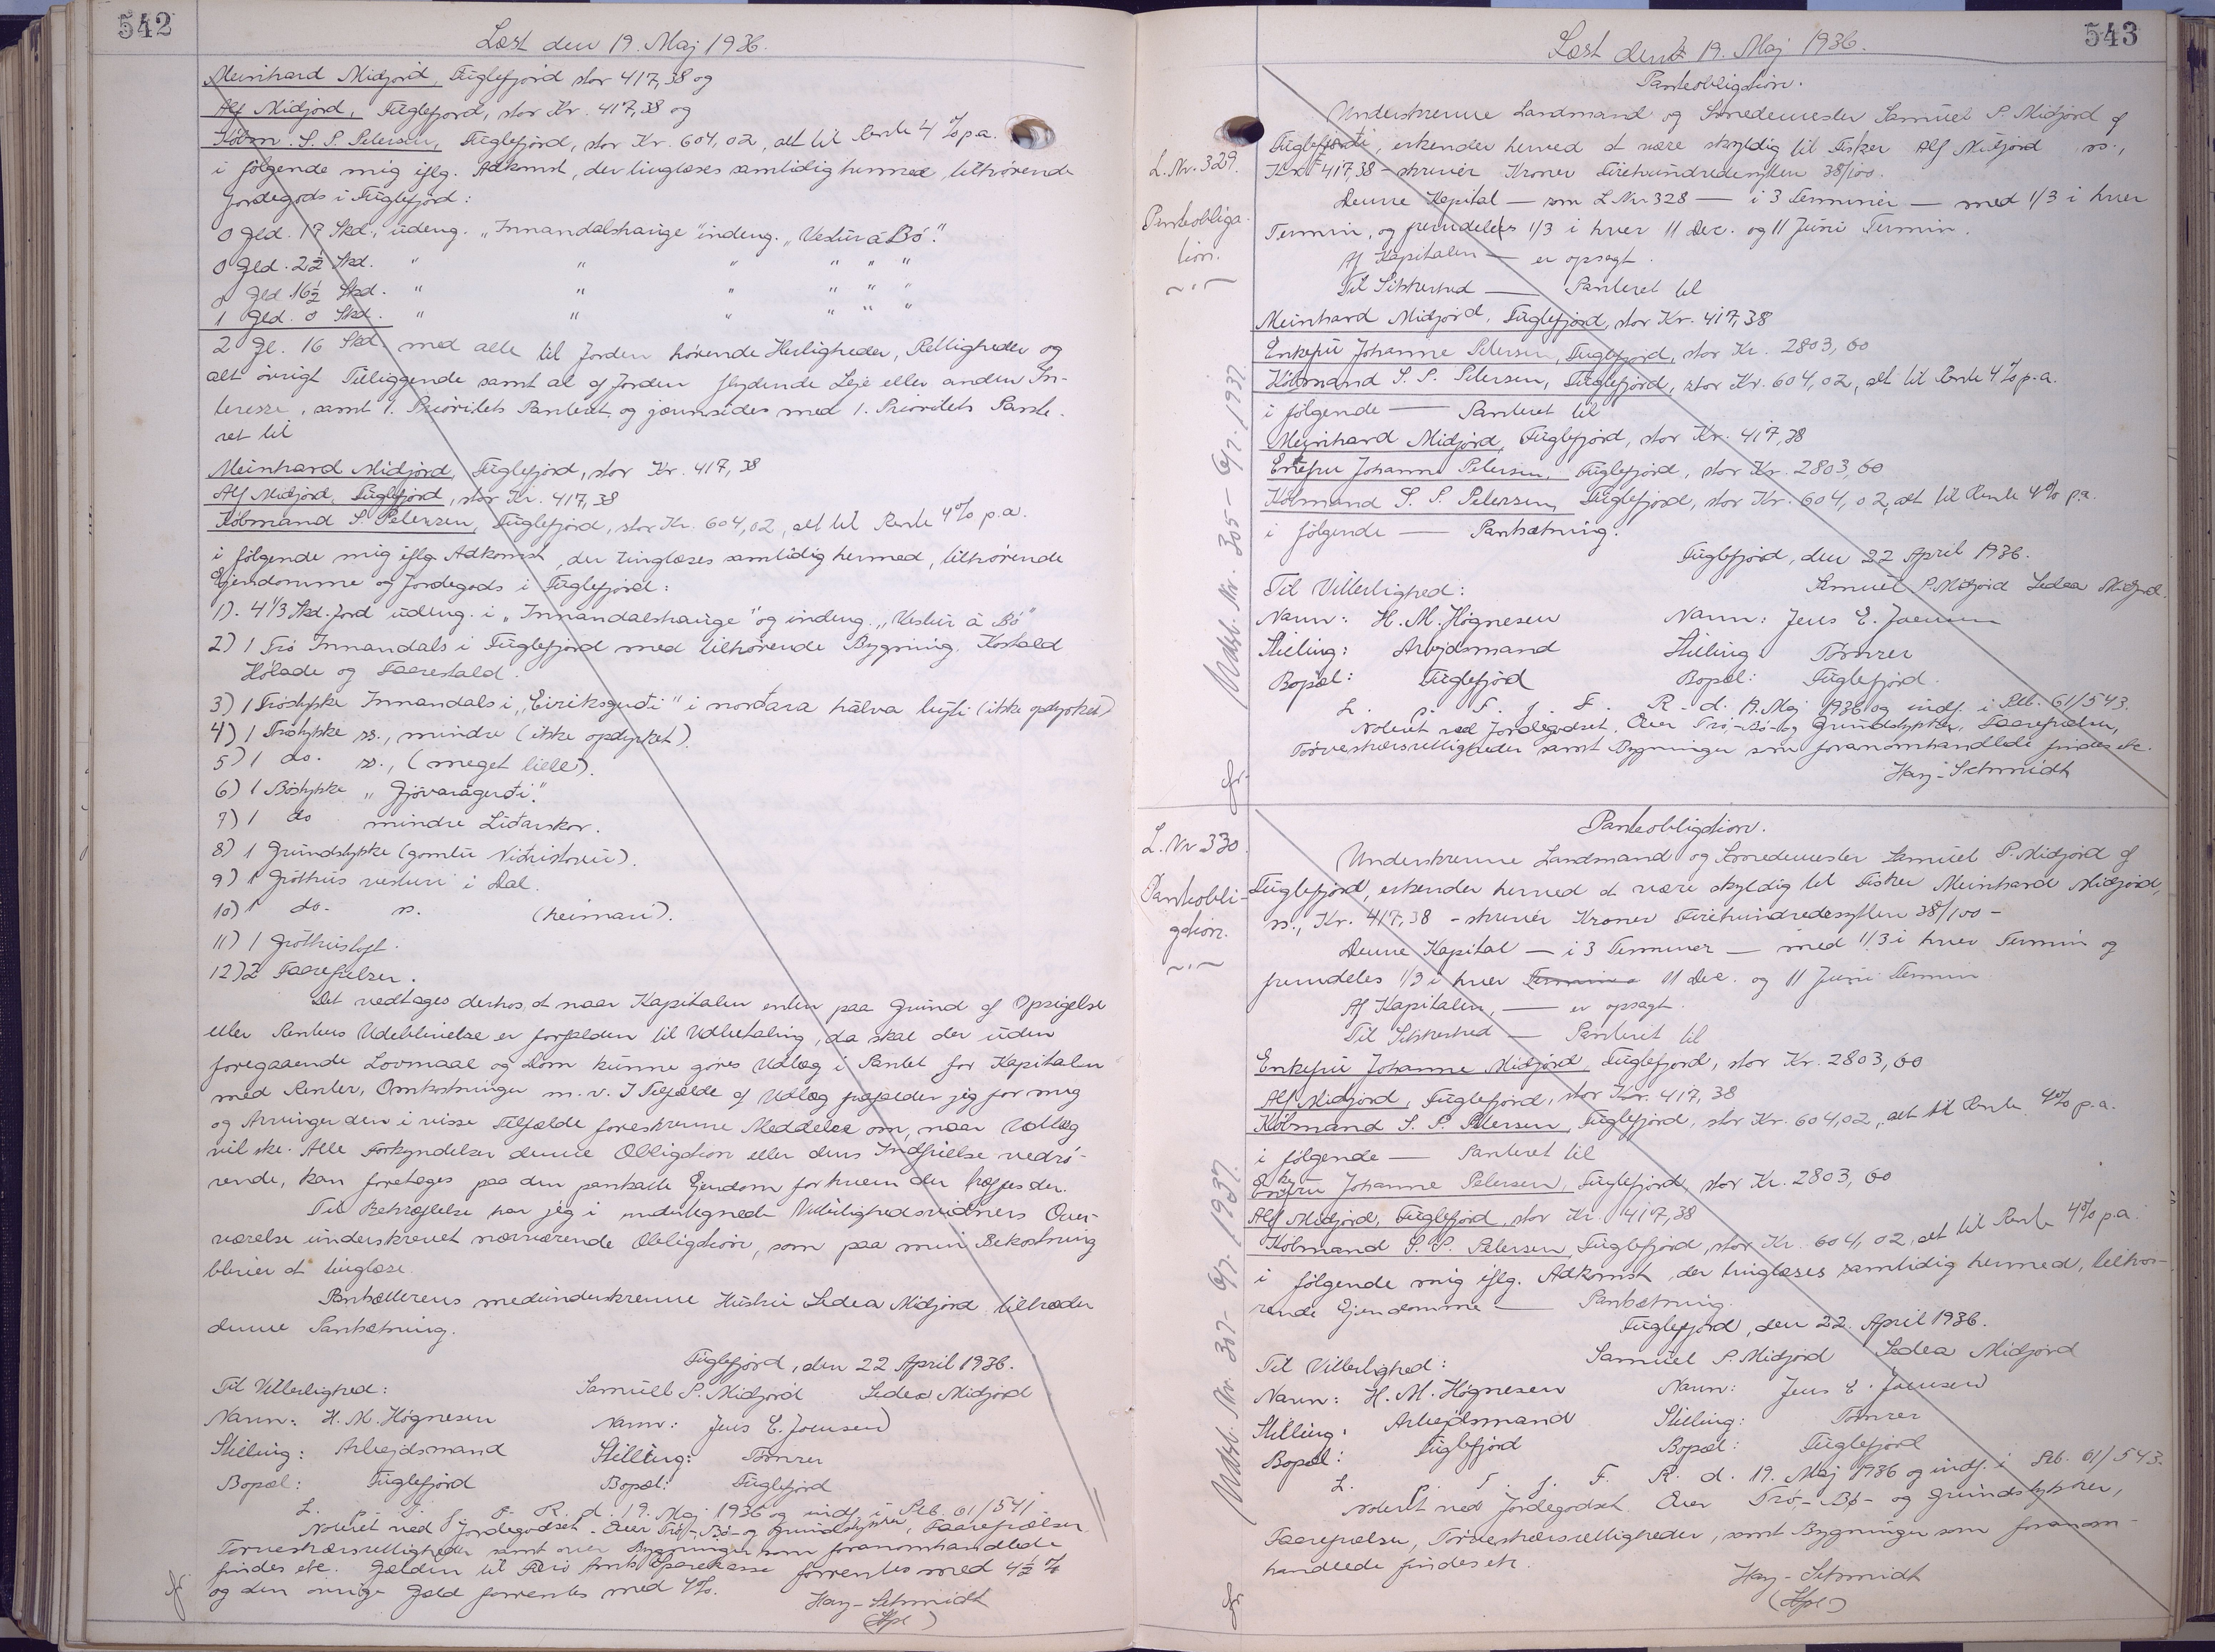 542
Læst den 19. Maj 1936.
Meinhard Midjord, Fuglefjord stor 417,38 og
Alf Midjord, Fuglefjord, stor Kr. 417,38 og
Købm. S. P. Petersen, Fuglefjord, stor Kr. 604,02, alt til Rente 4 % p.a.
i følgende mig iflg. Adkomst, der tinglæses samtidig hermed, tilhørende
Jordegods i Fuglefjord:
0 Gld. 17 Skd., udeng. "Innandalshauge" indeng. "Vestur á Bø".
0 Gld. 2½ Skd. " " " " " "
0 Gld 16½ Skd. " " " " " "
1 Gld. 0 Skd. " " " " " "
2 Gl. 16 Skd. med alle til Jorden hørende Herligheder, Rettigheder og
alt øvrigt Tilliggende samt al af Jorden flydende Leje eller anden In-
teresse, samt 1. Prioritets Panteret og jævnsides med 1. Prioritets Pante-
ret til
Meinhard Midjord, Fuglefjord, stor Kr. 417,38
Alf Midjord, Fuglefjord, stor Kr. 417,38
Købmand S. Petersen, Fuglefjord, stor Kr. 604,02, alt til Rente 4 % p.a.
i følgende mig iflg Adkomst, der tinglæses samtidig hermed, tilhørende
Ejendomme og Jordegods i Fuglefjord:
1). 4 1/3 Skd. Jord udeng. i "Innandalshauge" og indeng. "Vestur á Bø"
2) 1 Trø Innandals i Fuglefjord med tilhørende Bygning. Kostald
Hølade og Faarestald.
3) 1 Trøstykke Innandals i "Eiriksgerði" i norðara hálva býti (ikke opdyrket)
4) 1 Trøstykke ss., mindre (ikke opdyrket).
5) 1 do. ss., (meget lille).
6) 1 Bøstykke "Gjóvarágerði".
7) 1 do mindre Liðarskor.
8) 1 Grundstykke (gomlu Niðristovu).
9) 1 Gróthús vesturi i Dal.
10) 1 do. ss. (heimari).
11) 1 Gróthústoft.
12) 2 Faarefælser.
Det vedtages derhos, at naar Kapitalen enten paa Grund af Opsigelse
eller Renters Udeblivelse er forfalden til Udbetaling, da skal der uden
foregaaende Lovmaal og Dom kunne gøres Udlæg i Pantet for Kapitalen
med Renter, Omkostninger m.v. I Tilfælde af Udlæg frafalder jeg for mig
og Arvinger den i visse Tilfælde foreskrevne Meddelelse om, naar Udlæg
vil ske. Alle Forkyndelser denne Obligation eller dens Indfrielse vedrø-
rende, kan foretages paa den pantsatte Ejendom for hvem der træffes der.
Til Bekræftelse har jeg i undertegnede Vitterlighedsvidners Over-
værelse underskrevet nærværende Obligation, som paa min Bekostning
bliver at tinglæse.
Pantsætterens medunderskrevne Hustru Sedea Midjord tiltræder
denne Pantsætning.
Fuglefjord, den 22 April 1936.
Til Vitterlighed: Samuel P. Midjord Sedea Midjord
Navn: H. M. Høgnesen Navn: Jens E. Joensen
Stilling: Arbejdsmand Stilling: Tømrer
Bopæl: Fuglefjord Bopæl: Fuglefjord
L. p. T. f. F. R. d. 19. Maj 1936 og indf. i Ptb. 61/541.
Noteret ved Jordegodset. Over Trø-, Bø- og Grundstykker, Faarefælser
Tørveskærsrettigheder samt over Bygninger som foranomhandlede
findes etc. Gælden til Færø Amts Sparekasse forrentes med 4½ %
og den øvrige Gæld forrentes med 4%.
Hay-Schmidt
543
Læst den 19. Maj 1936.
L. Nr. 329.
Panteobliga-
tion.
Panteobligation.
Underskrevne Landmand og Smedemester Samuel P. Midjord af
Fuglefjord, erkender herved at være skyldig til Fisker Alf Midjord ss.,
Kr. 417,38 - skriver Kroner Firehundredesytten 38/100.
Denne Kapital — som L Nr 328 — i 3 Terminer — med 1/3 i hver
Termin, og fremdeles 1/3 i hver 11 Dec. og 11 Juni Termin.
Af Kapitalen — er opsagt.
Til Sikkerhed — Panteret til
Meinhard Midjord, Fuglefjord, stor Kr. 417,38
Enkefru Johanne Petersen, Fuglefjord, stor Kr. 2803,60
Købmand S. P. Petersen, Fuglefjord, stor Kr. 604,02, alt til Rente 4 % p.a.
i følgende — Panteret til
Meinhard Midjord, Fuglefjord, stor Kr. 417,38
Enkefru Johanne Petersen, Fuglefjord, stor Kr. 2803,60
Købmand S. P. Petersen, Fuglefjord, stor Kr. 604,02, alt til Rente 4% p.a.
i følgende — Pantsætning.
Fuglefjord, den 22 April 1936.
Til Vitterlighed: Samuel P. Midjord Sedea Midjord.
Navn: H. M. Høgnesen Navn: Jens E. Joensen
Stilling: Arbejdsmand Stilling Tømrer
Bopæl: Fuglefjord Bopæl: Fuglefjord.
L. p. T. f. F. R. d. 19. Maj 1936 og indf. i Ptb. 61/543.
Noteret ved Jordegodset. Over Trø-, Bø- og Grundstykker, Faarefælser,
Tørveskærsrettigheder samt Bygninger som foranomhandlede findes etc.
Hay-Schmidt
Udsl. Nr. 305 - 6/7. 1937.
L. Nr 330.
Panteobli-
gation.
Panteobligation.
Underskrevne Landmand og Smedemester Samuel P. Midjord af
Fuglefjord, erkender herved at være skyldig til Fisker Meinhard Midjord,
ss., Kr. 417,38 - skriver Kroner Firehundredesytten 38/100 -
Denne Kapital — i 3 Terminer — med 1/3 i hver Termin og
fremdeles 1/3 i hver Termin 11 Dec. og 11 Juni Termin
Af Kapitalen, — er opsagt.
Til Sikkerhed — Panteret til
Enkefru Johanne Midjord, Fuglefjord, stor Kr. 2803,60
Alf Midjord, Fuglefjord, stor Kr. 417,38
Købmand S. P. Petersen, Fuglefjord, stor Kr. 604,02, alt til Rente 4% p.a.
i følgende — Panteret til
Enkefru Johanne Petersen, Fuglefjord, stor Kr. 2803,60
Alf Midjord, Fuglefjord, stor Kr. 417,38
Købmand S. P. Petersen, Fuglefjord, stor Kr. 604,02, alt til Rente 4% p.a.
i følgende mig iflg. Adkomst, der tinglæses samtidig hermed, tilhø-
rende Ejendomme — Pantsætning.
Fuglefjord, den 22. April 1936.
Til Vitterlighed: Samuel P. Midjord Sedea Midjord
Navn: H. M. Høgnesen Navn: Jens E. Joensen
Stilling: Arbejdsmand Stilling: Tømrer
Bopæl: Fuglefjord Bopæl: Fuglefjord
L. p. T. f. F. R. d. 19. Maj 1936 og indf. i Ptb. 61/543.
Noteret ved Jordegodset. Over Trø-, Bø- og Grundstykker,
Faarefælser, Tørveskærsrettigheder, samt Bygninger som foranom-
handlede findes etc.
Hay-Schmidt
Udsl. Nr. 307 - 6/7. 1937.